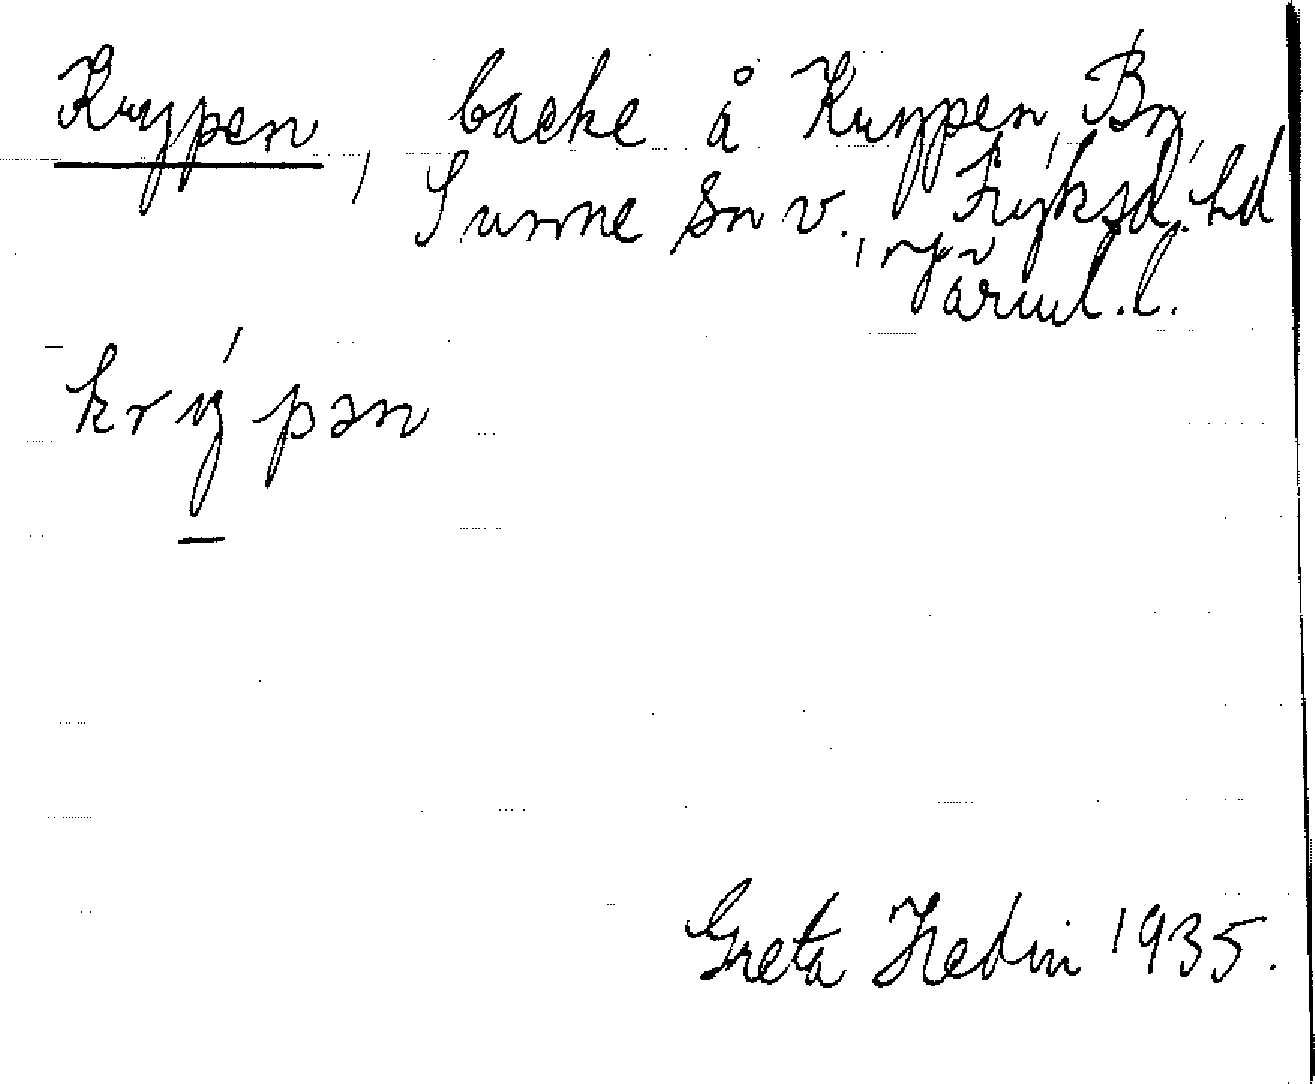 Krypen, backe å Krypen, By,
Sunne sn v., Fryksd. hd,
Värml. l.
krýpən
Greta Hedin 1935.